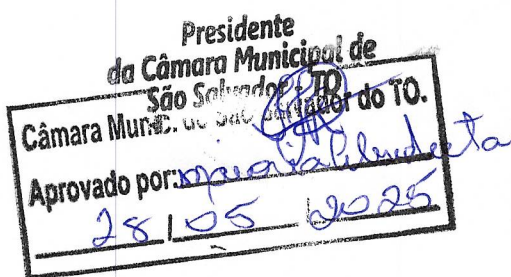 Presidente
da Câmara Municipal de
São Salvador - TO
Câmara Munic. de São Salvador do TO.
Aprovado por:
28 / 05 / 2025